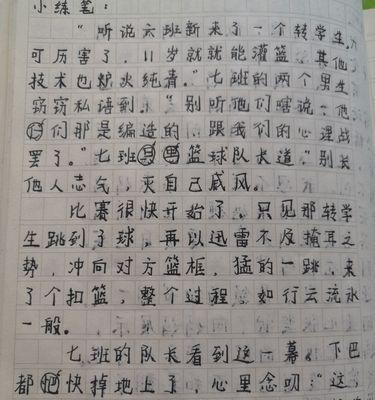 小练笔：
“听说六班新来了一个转学生，
可厉害了，11岁就就能灌篮，其他
技术也炉火纯青。”七班的两个男生
窃窃私语到。“别听他们瞎说，他
们那是编造的，跟我们的心理战
罢了。”七班男篮球队长道，“别长
他人志气，灭自己威风。
比赛很快开始了，只见那转学
生跳到了球，再以迅雷不及掩耳之
势，冲向对方篮框，猛的一跳，来
了个扣篮，整个过程，如行云流水
一般。
七班的队长看到这一幕。下巴
都快掉地上了，心里念叨：“这，